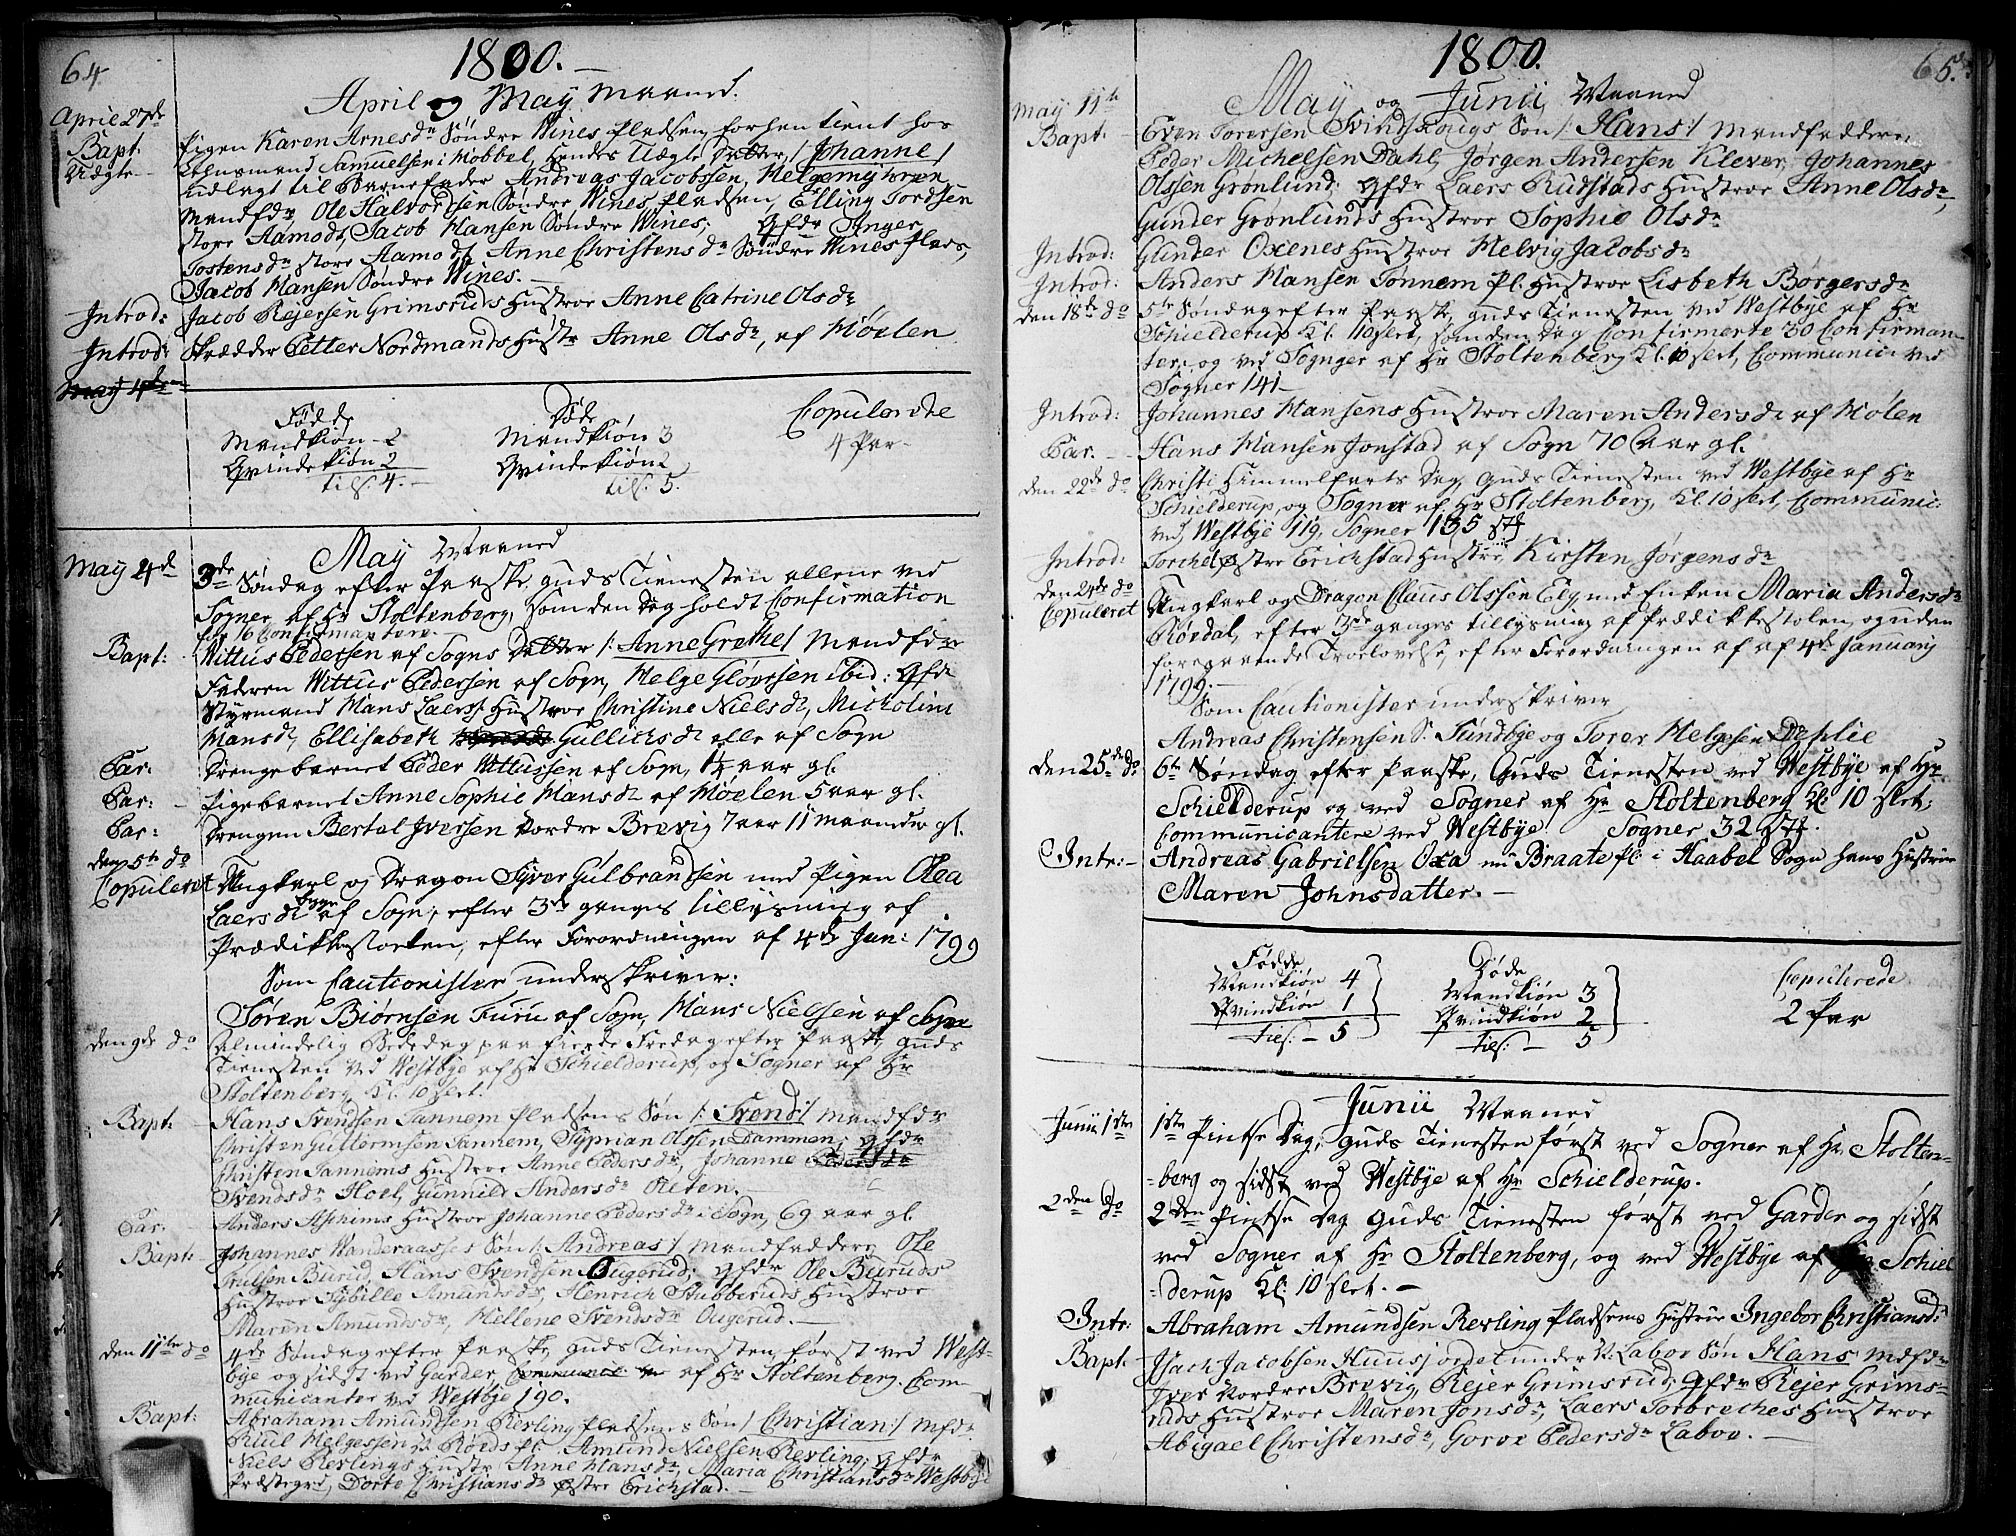 64.
1800.
April og May Maaned.
Aprile 27de
Bapt.
Uægte
Pigen Karen Arnesdr Søndre Wines Pladsen forhen tient hos
Lehnsmand Samuelsen i Mobbel, hendes Uægte Datter /: Johanne :/
udlagt til Barnefader Andreas Jacobssen, Helgemy
Mandfdr Ole Halvordsen Søndre Wines Pladsen, Elling Tordsen
store Aamodt, Jacob Hansen Søndre Wines; Qfdr Anger
Tostensdr store Aamodt, Anne Christensdr Søndre Wines Plads,
Jacob Hansen Søndre Wines.
Introd: Jacob Rejersen Grimsruds Hustroe Anne Catrine Olsdr
Introd: Skrædder Petter Nordmands Hustr Anne Olsdr, af Møelen
May 4de
Fødde
Mandkiøn - 2
Qvindekiøn 2
tils: 4.
Døde
Mandkiøn 3
Qvindekiøn 2
tils: 5.
Copulerede
4 Par
May Maaned
May 4de 3de Søndag efter Paaske, Guds Tienesten allene ved
Sogner af Hr Stoltenberg, som den Dag holdt Confirmation
for 16 Confirmantere.
Bapt: Wittus Pedersen af Sogns Datter /: Anne Grethe :/ Mandfdre
Faderen Wittus Pedersen af Sogn, Helge Gløersen ibid: Qfdr
Styrmand Hans Laers: Hustroe Christine Nielsdr, Micholine
Hansdr, Ellisabeth Gullichsdr alle af Sogn
Par: Drengebarnet Peder Wittussen af Sogn, 1¼ aar gl.
Par: Pigebarnet Anne Sophie Hansdr af Møelen 5 aar gl.
Par: Drengen Bertal Iversen Nordre Brevig 7 aar 11 maaneder gl.
den 5te do
Copuleret Ungkarl og Dragon Syver Gulbrandsen med Pigen Olea
Laersdr af Sogn, efter 3de ganges tillysning af
Prædikkestoelen, efter Forordningen af 4de Jan: 1799
Som Cautionister underskriver:
Søren Biørnsen Furu af Sogn, Hans Nielsen af Sogn
den 9de do Almindelig Bededag paa fierde Fredag efter Paaske, Guds
Tienesten ved Westbye af Hr Schielderup, og Sogner af Hr
Stoltenberg, Kl. 10 slet.
Bapt: Hans Svendsen Tannem Pladsens Søn /: Svend :/ Mandfdr
Christen Guttormsen Tannem, Syprian Olssen Dammen; Qfdr
Christen Tannems Hustroe Anne Pedersdr, Johanne Pedersdr
Svendsdr Hoel, Gunnild Andersdr Oleten.
Par. Anders Aschims Hustroe Johanne Pedersdr i Sogn, 69 aar gl.
Bapt: Johannes Wanderaasses Søn /: Andreas :/ Mandfaddere Ole
Burud, Hans Svendsen Ougerud; Qfdr Ole Buruds
Hustroe Sybille Amundsdr, Henrich Stubberuds Hustroe
Maren Amundsdr, Hellene Svendsdr Ougerud.
den 11te do 4de Søndag efter Paaske, Guds Tienesten først ved West-
bye og sidst ved Garder, af Hr Stoltenberg. Com-
municanter ved Westbye 190.
Bapt: Abraham Amundsen Revling Pladsens Søn /: Christian :/ Mfdr
Riul Helgessen Røeds Pl, Amund Nielsen Revling; Qfdr
Niels Revlings Hustr Anne Hansdr, Maria Christiansdr Westbye
Præstegrd, Dorte Christiansdr Østre Erichstad.
65.
1800.
May og Junii Maaned
May 11te
Bapt: Even Torersen Svindskougs Søn /: Hans :/ Mandfaddere
Peder Michelsen Dahl, Jørgen Andersen Klever, Johannes
Olssen Grønlund; Qfdr Laers Rudstads Hustroe Anne Olsdr,
Gunder Grønlunds Hustroe Sophie Olsdr
Introd: Gunder Oxenes Hustroe Helvig Jacobsdr
Introd: Anders Hansen Tønnem Pl. Hustroe Lisbeth Børgersdr
den 18de do 5te Søndag efter Paaske, Guds Tienesten ved Westbye af Hr
Schielderup Kl. 10 slet, som den Dag Confirmerte 30 Confirman-
ter, og ved Sogner af Hr Stoltenberg Kl. 10 slet, Communic: ved
Sogner 141
Introd: Johannes Hansens Hustroe Maren Andersdr af Mølen
Par. Hans Hansen Jonstad af Sogn 70 Aar gl.
den 22de do Christi Himmelfarts Dag, Guds Tienesten ved Westbye af Hr
Schielderup, og Sogner af Hr Stoltenberg, Kl. 10 slet, Communic:
ved Westbye 119, Sogner 135 stk
Introd: Torchel Østre Erichstad Hustroe, Kirsten Jørgensdr
den 24de do
Copuleret Ungkarl og Dragon Claus Olssen Ely med Enken Maria Andersdr
Røvdal, efter 3de ganges tillysning af Prædikkestolen, og uden
foregaaende Troelovelse, efter Forordningen af af 4de January
1799.
Som Cautionister underskriver
Andreas Christensen S. Sundbye og Torer Helgesen Dæhlie
den 25de do 6te Søndag efter Paaske, Guds Tienesten ved Westbye af Hr
Schielderup og ved Sogner af Hr Stoltenberg Kl: 10 slet;
Communicantere ved Westbye Sogner 32 stk.
Intr: Andreas Gabrielsen Oxa nu Braate Pl: i Haabel Sogn hans Hustrue
Maren Johnsdatter.
Fødde
Mandkiøn 4
Qvindkiøn 1
tils: 5
Døde
Mandkiøn 3
Qvindkiøn 2
tils: 5
Copulerede
2 Par
Junii Maaned
Junii 1ste 1ste Pintse Dag, Guds Tienesten først ved Sogner af Hr. Stolten-
berg og sidst ved Westbye af Hr Schielderup.
2den do 2den Pintse Dag Guds Tienesten først ved Garder og sidst
ved Sogner af Hr Stoltenberg, og ved Westbye af Hr Schiel
derup Kl: 10 slet.
Intr: Abraham Amundsen Revling Pladsens Hustrue Ingebor Christiansd:
Bapt: Isach Jacobsen Huusjordet under N: Labov Søn Hans Mdfdr
Iver Nordre Brevig, Rejer Grimsrud; Qfdr Rejer Grims-
ruds Hustroe Maren Jonsdr, Laers Torbreches Hustroe
Abigael Christensdr, Gorve Pedersdr Labov.